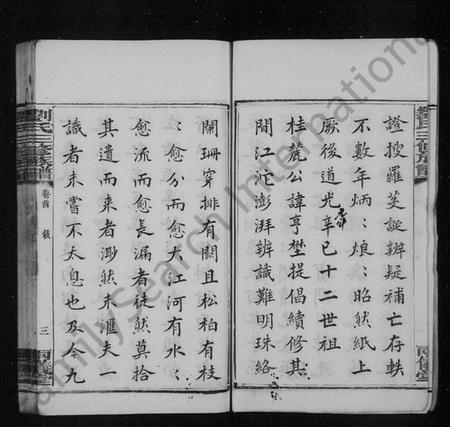 證搜羅芟誕辨疑補亡存軼
不數年炳〻烺〻昭然紙上
厥後道光辛巳十二世祖
桂蔍公諱亨埜提倡續修其
間江沱澎湃辨識難明珠絡
闌珊穿排有闕且松柏有枝
〻愈分而愈大江河有水〻
愈流而愈長漏者徒然莫拾
其遺而來者渺然未滙夫一
識者未嘗不太息也及今九
劉氏三修族譜
卷首
敘
三
兩儀堂
劉氏三修族譜
兩儀堂
FamilySearch International